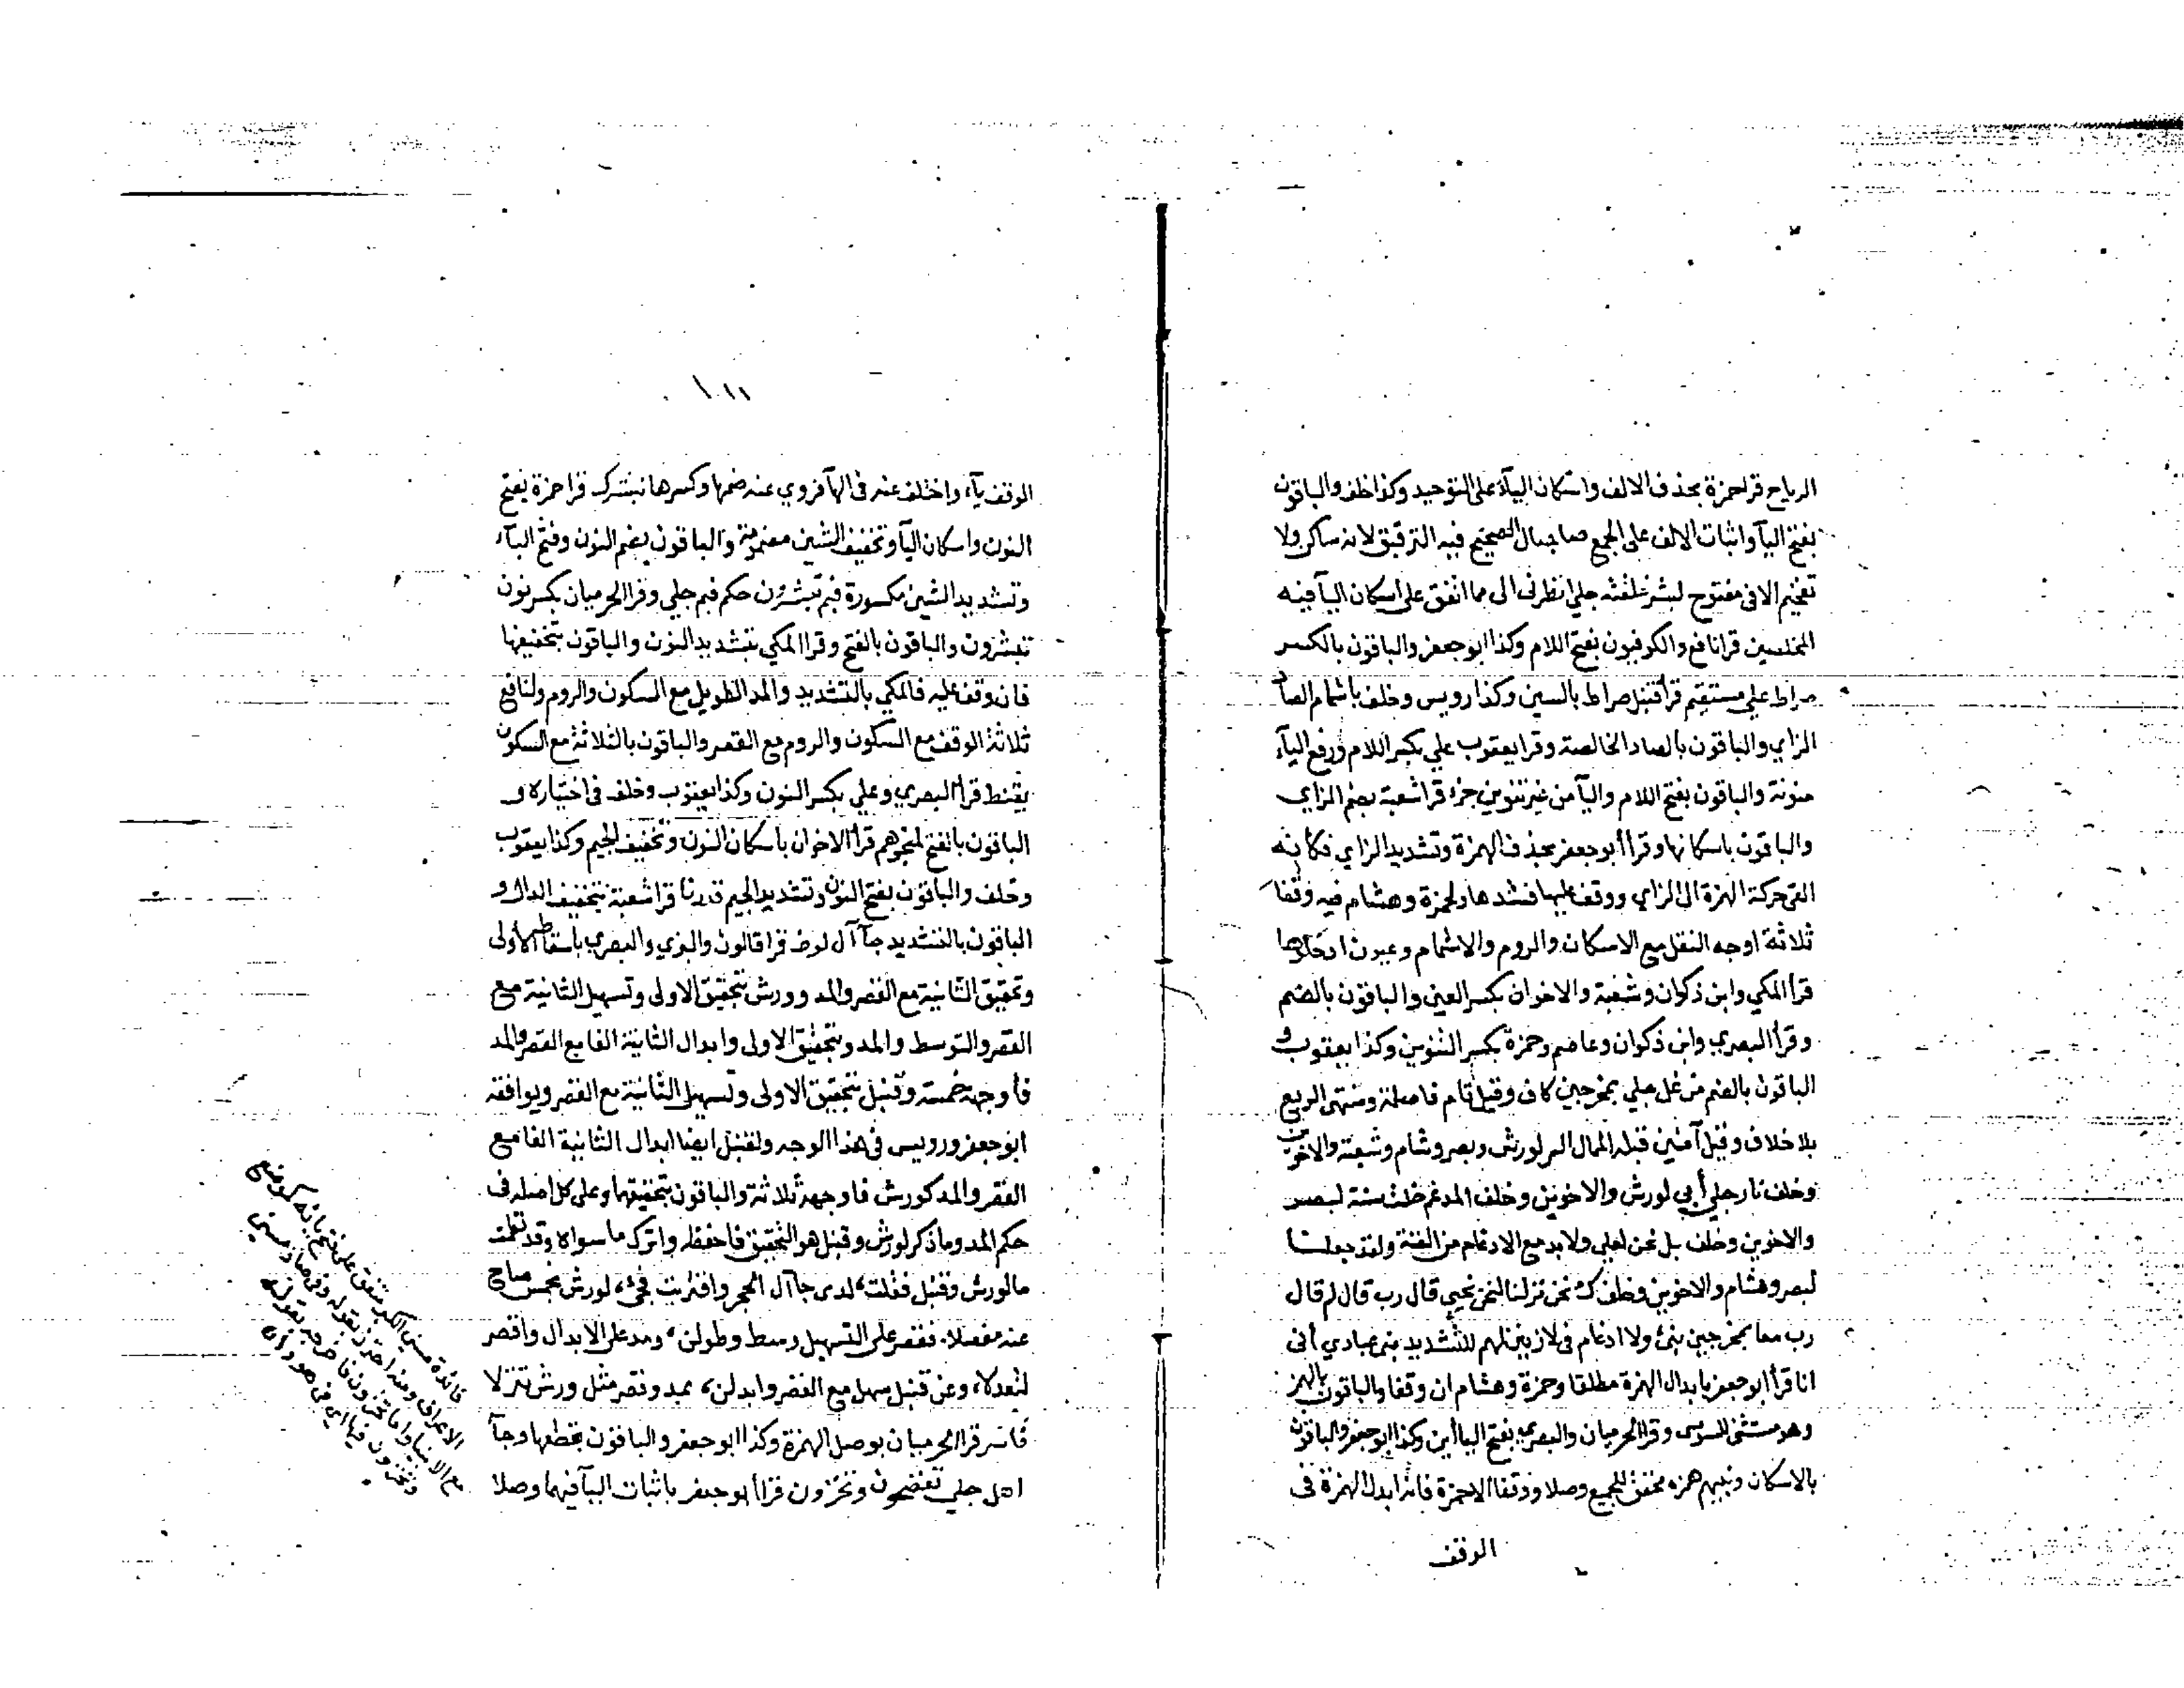 الرياح قرا حمزة بحذف الالف واسكان اليآء على التوحيد وكذا خلف والباقون
بفتح اليآ واثبات الالف على الجمع صلصال الصحيح فيه الترقيق لانه ساكن ولا
تفخيم الا في مفتوح لبشر خلقته جلي انظرني الى مما اتفق على اسكان اليآ فيه
المخلصين قرا نافع والكوفيون بفتح اللام وكذا ابو جعفر والباقون بالكسر
صراط علي مستقيم قرا قنبل صراط بالسين وكذا رويس وخلف باشمام الصاد
الزاي والباقون بالصاد الخالصة وقرا يعقوب علي بكسر اللام ورفع اليآء
منونة والباقون بفتح اللام واليآ من غير تنوين جزء قرا شعبة بضم الزاي
والباقون باسكانها وقرا أبو جعفر بحذف الهمزة وتشديد الزاي فكانه
القى حركة الهمزة الى الزاي ووقف عليها فشددها ولحمزة وهشام فيه وقفا
ثلاثة اوجه النقل مع الاسكان والروم والاشمام وعيون ادخلوها
قرأ المكي وابن ذكوان وشعبة والاخوان بكسر العين والباقون بالضم
وقرأ البصري وابن ذكوان وعاصم وحمزة بكسر التنوين وكذا يعقوب و
الباقون بالضم من غل جلي بمخرجين كاف وقيل تام فاصلة ومنتهى الربع
بلا خلاف وقيل آمنين قبله الممال الر لورش وبصر وشام وشعبة والاخوين
وخلف نار جلي أبى لورش والاخوين وخلف المدغم خلت سنة لبصر
والاخوين وخلف بل نحن لعلي ولا بد مع الادغام من الغنة ولقد جعلنا
لبصر وهشام والاخوين وخلف ك نحن نزلنا لنحن نحيي قال رب قال لم قال
رب معا بمخرجين نبئ ولا ادغام في لازينن لهم للتشديد نبئ عبادي أني
انا قرأ ابو جعفر بابدال الهمزة مطلقا وحمزة وهشام ان وقفا والباقون بالهمز
وهو مستثنى للسوسى وقرا الحرميان والبصري بفتح اليآ أين وكذا ابو جعفر والباقون
بالاسكان ونبيهم همزه محقق للجميع وصلا ووقفا الا حمزة فانه ابدل الهمزة في
الوقف
١١١
الوقف يآء واختلف عنه في الهآ فروي عنه ضمها وكسرها نبشرك قرا حمزة بفتح
النون واسكان اليآ وتخفيف الشين مضمومة والباقون بضم النون وفتح البآء
وتشديد الشين مكسورة فبم تبشرون حكم فبم جلي وقرا الحرميان بكسر نون
تبشرون والباقون بالفتح وقرا المكي بتشديد النون والباقون بتخفيفها
فان وقف عليه فالمكي بالتشديد والمد الطويل مع السكون والروم ولنافع
ثلاثة الوقف مع السكون والروم مع القصر والباقون بالثلاثة مع السكون
يقنط قرأ البصري وعلي بكسر النون وكذا يعقوب وخلف في اختياره و
الباقون بالفتح لمنجوهم قرا الاخوان باسكان النون وتخفيف الجيم وكذا يعقوب
وخلف والباقون بفتح النون وتشديد الجيم قدرنا قرا شعبة بتخفيف الدال و
الباقون بالتشديد جآ آل لوط قرا قالون والبزي والبصري باسقاط الاولى
وتحقيق الثانية مع القصر والمد وورش بتحقيق الاولى وتسهيل الثانية مع
القصر والتوسط والمد وبتحقيق الاولى وابدال الثانية الفا مع القصر والمد
فأوجهه خمسة وقنبل بتحقيق الاولى وتسهيل الثانية مع القصر ويوافقه
ابو جعفر ورويس في هذا الوجه ولقنبل ايضا ابدال الثانية الفا مع
القصر والمد كورش فاوجهه ثلاثة والباقون بتحقيقهما وعلى كل اصله في
حكم المد وما ذكر لورش وقنبل هو التحقيق فاحفظه واترك ما سواه وقد نظمت
ما لورش وقنبل فقلت لدى جا آل الحجر واقتربت فجئ لورش بخمس صاح
عنه مفصلا فقصر على التسهيل وسط وطولن ومد على الابدال واقصر
لتعدلا وعن قنبل سهل مع القصر وابدلن بمد وقصر مثل ورش تنزلا
فاسر قرا الحرميان بوصل الهمزة وكذا ابو جعفر والباقون بقطعها وجآ
اهل جلي تفضحون وتخزون قرأ ابو جعفر باثبات اليآ فيهما وصلا
فائدة مسني الكبر متفق على فتح يائه كموضع
الاعراف ومنه احترز بقوله وفي صاد مسني
مع الانبيا واما تخزون
وتخزون فيها اي في هود